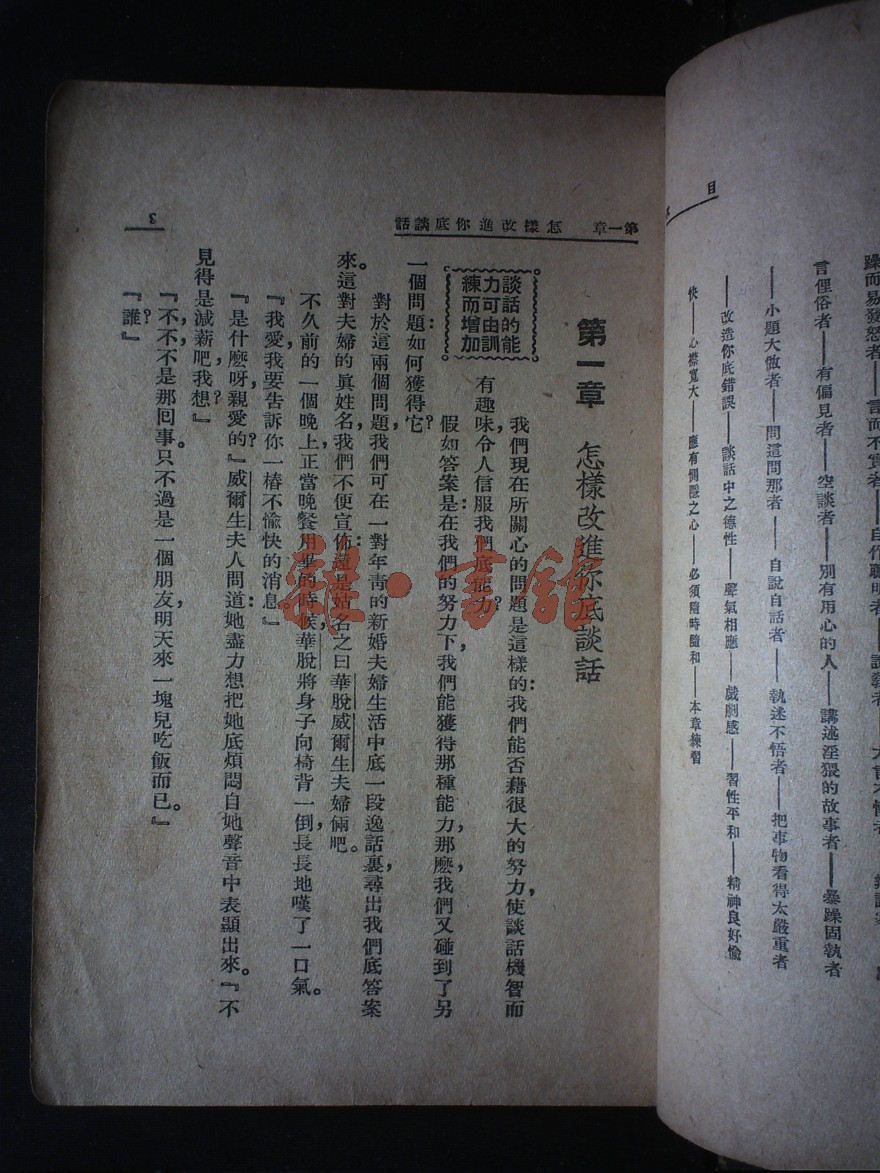 言俚俗者——有偏見者——空談者——別有用心的人——講述淫猥的故事者——暴躁固執者
——小題大做者——問這問那者——自說自話者——執迷不悟者——把事物看得太嚴重者
——改造你底錯誤——談話中之德性——聲氣相應——戲劇感——習性平和——精神良好愉
快——心襟寬大——應有惻隱之心——必須隨時隨和——本章練習
目
第一章 怎樣改進你底談話
第一章 怎樣改進你底談話
談話的能
力可由訓
練而增加
我們現在所關心的問題是這樣的：我們能否藉很大的努力，使談話機智而
有趣味，令人信服我們底能力？
假如答案是在我們的努力下，我們能獲得那種能力，那麽，我們又碰到了另
一個問題：如何獲得它？
對於這兩個問題，我們可在一對年靑的新婚夫婦生活中底一段逸話裏，尋出我們底答案
來。這對夫婦的眞姓名，我們不便宣佈；還是姑名之曰華脫威爾生夫婦倆吧。
不久前的一個晚上，正當晚餐用畢的時候，華脫將身子向椅背一倒，長長地嘆了一口氣。
『我愛，我要告訴你一樁不愉快的消息。』
『是什麽呀，親愛的？』威爾生夫人問道：她盡力想把她底煩悶自她聲音中表顯出來。『不
見得是減薪吧，我想？』
『不，不，不是那回事。只不過是一個朋友，明天來一塊兒吃飯而已。』
『誰？』
3
雜·書館